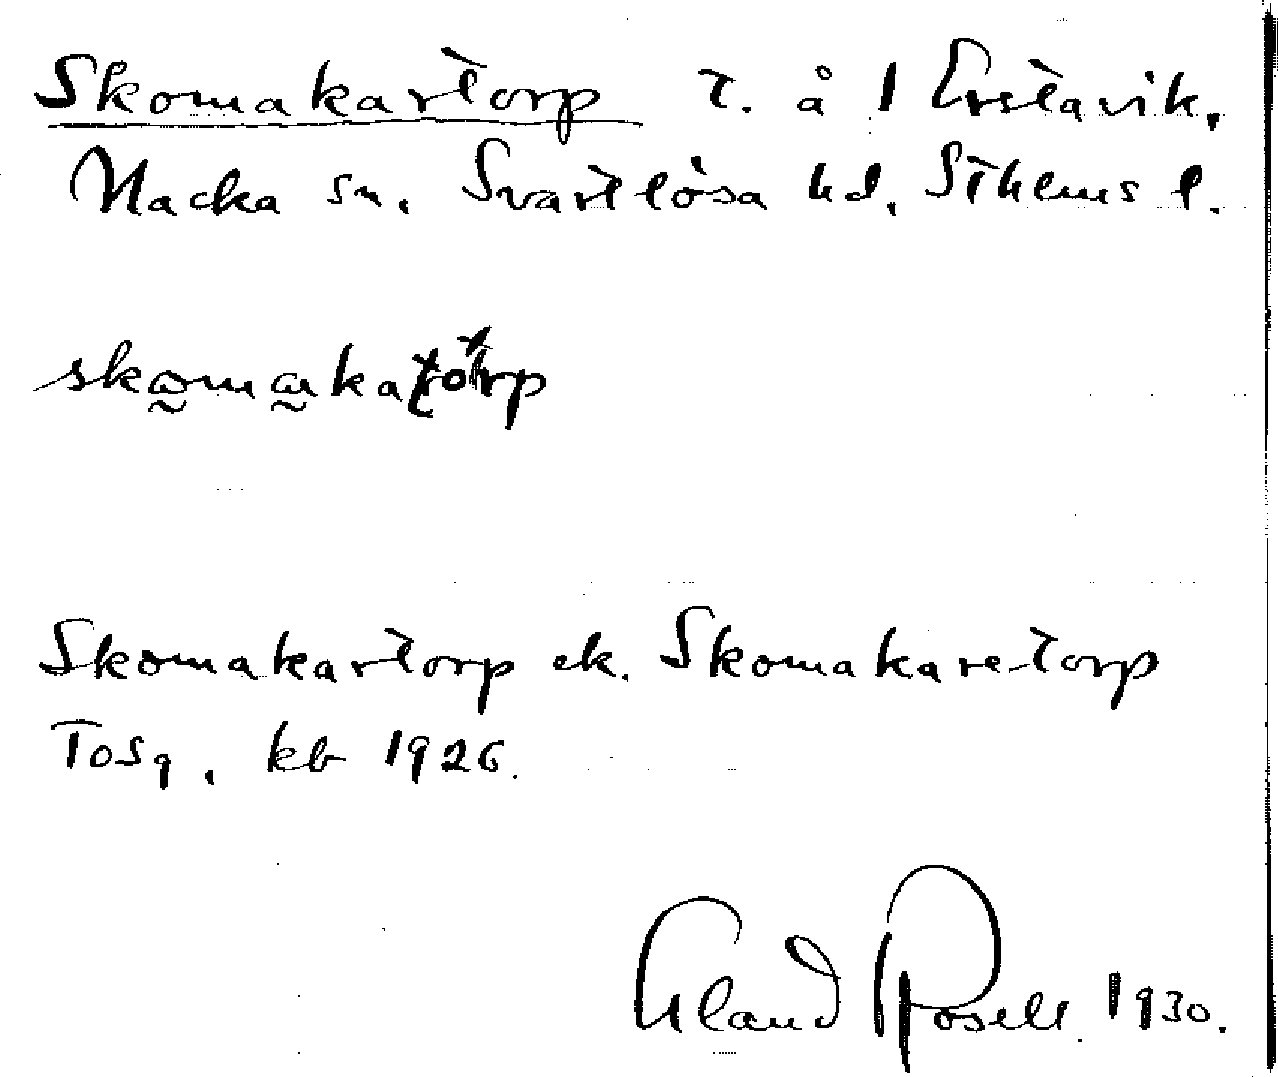 Skomakartorp t. å 1 Erstavik,
Nacka sn, Svartlösa hd, Sthlms l.
Skomakartorp ek. Skomakare-torp
Tosq, kb 1926.
Rosell 1930.